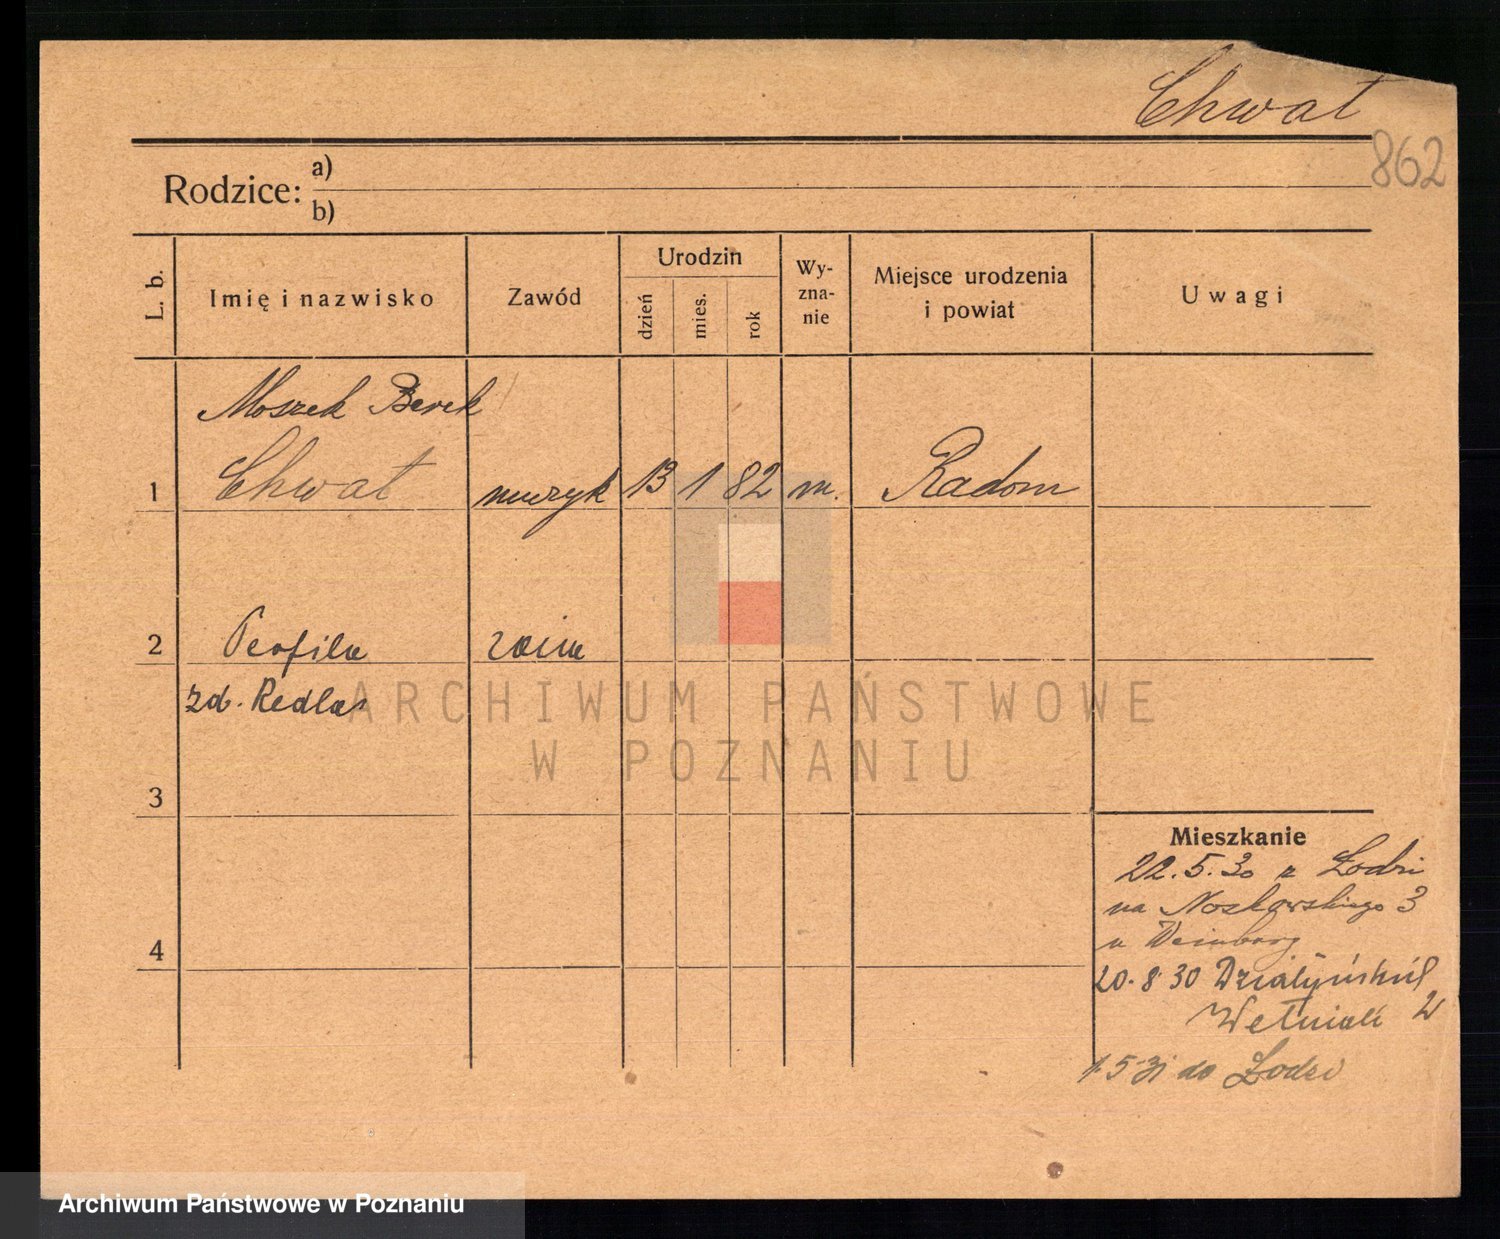 Chwat
862
Rodzice: a)
b)
L. b.
Imię i nazwisko
Zawód
Urodzin
dzień
mies.
rok
Wy-
zna-
nie
Miejsce urodzenia
i powiat
Uwagi
Moszek Berek
1 Chwat muzyk 13 1 82 m. Radom
2 Teofila
zd. Redla
3
4
Mieszkanie
22.5.30 z Łodzi
na Noskowskiego 3
u Weinberg
20.8.30 Działyńskich 2
Wełniak
1.5.31 do Łodzi
ARCHIWUM PAŃSTWOWE
W POZNANIU
Archiwum Państwowe w Poznaniu